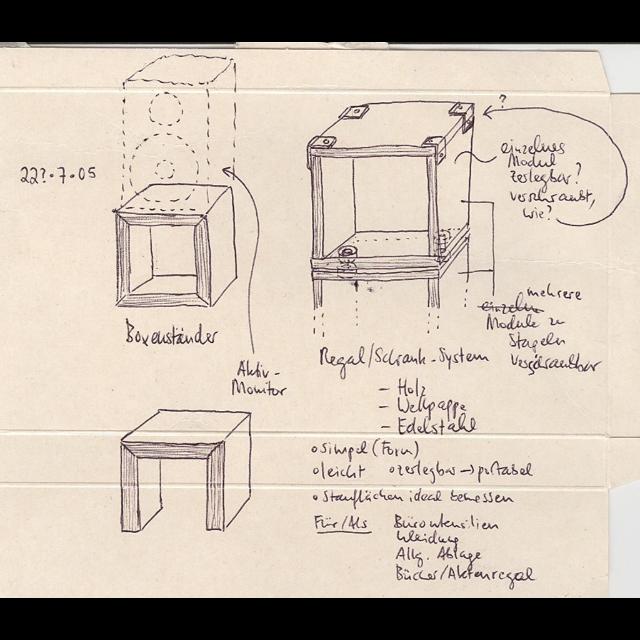 22?.7.05
Boxenständer
Aktiv-
Monitor
?
einzelnes
Modul
zerlegbar?
verschraubt,
wie?
mehrere
einzelne
Module zu
Stapeln
verschraubbar
Regal/Schrank-System
- Holz
- Wellpappe
- Edelstahl
o simpel (Form)
o leicht o zerlegbar → portabel
o Stauflächen ideal bemessen
Für/Als Büroutensilien
Kleidung
Allg. Ablage
Bücher/Aktenregal